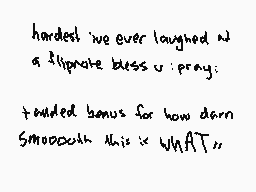 hardest ive ever laughed at
a flipnote bless u :pray:
+ added bonus for how darn
smooooth this is wHAT,,